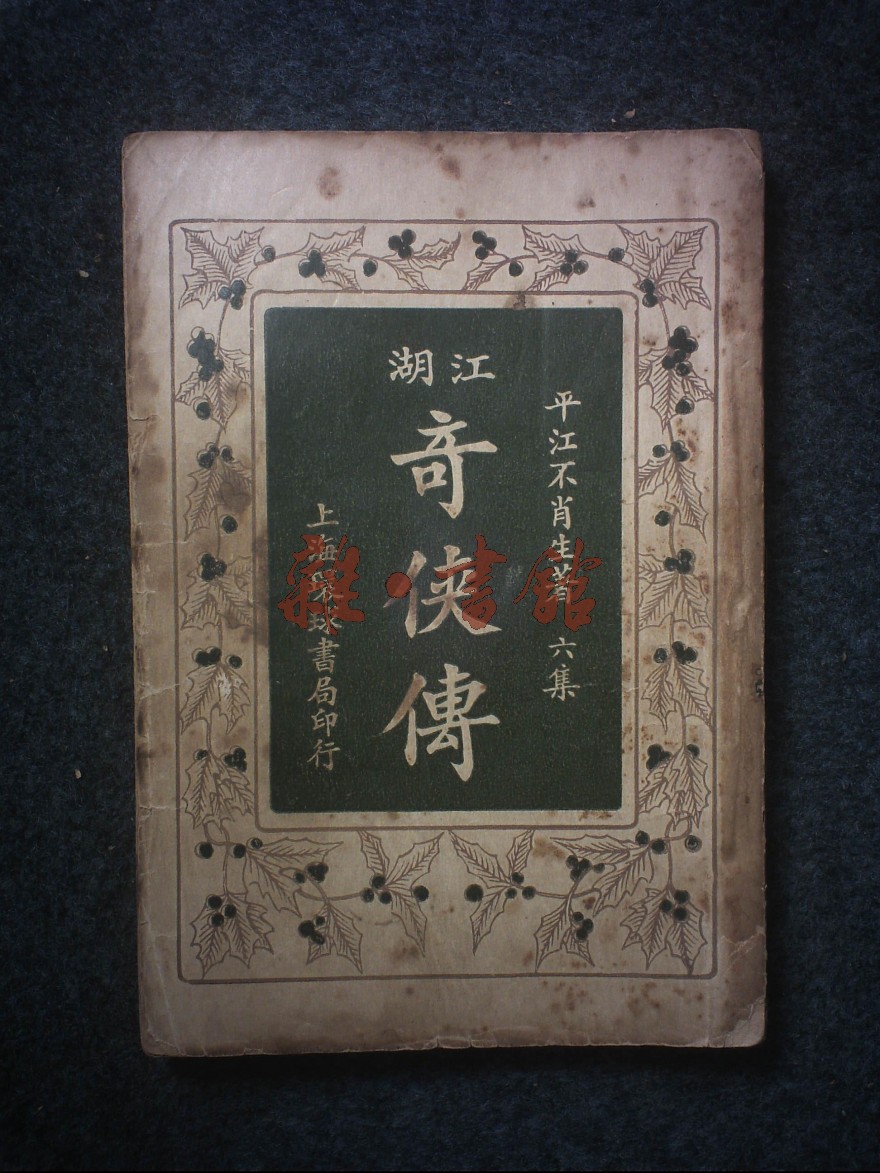 平江不肖生著 六集
江湖
奇俠傳
上海球書局印行
雜·書館